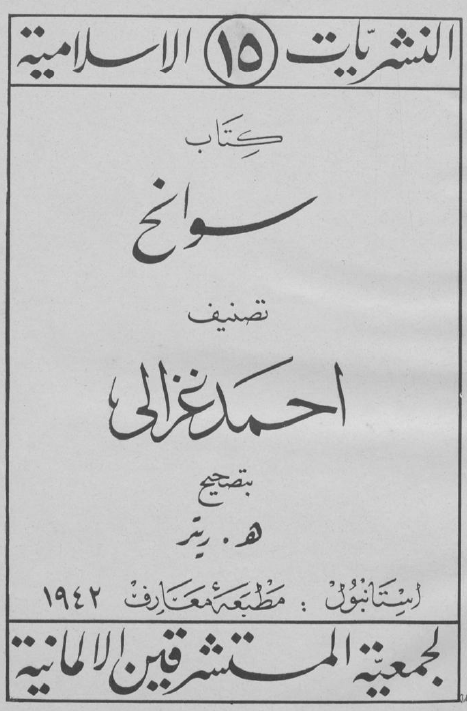 النشريّات ١٥ الاسلامية
كِتَاب
سوانح
تصنيف
احمد غزالی
بتصحيح
ھ . ريتر
اِسْتَانْبُولْ : مَطْبَعَهٔ مَعَارِفْ ١٩٤٢
لجمعيّة المستشرقين الالمانية